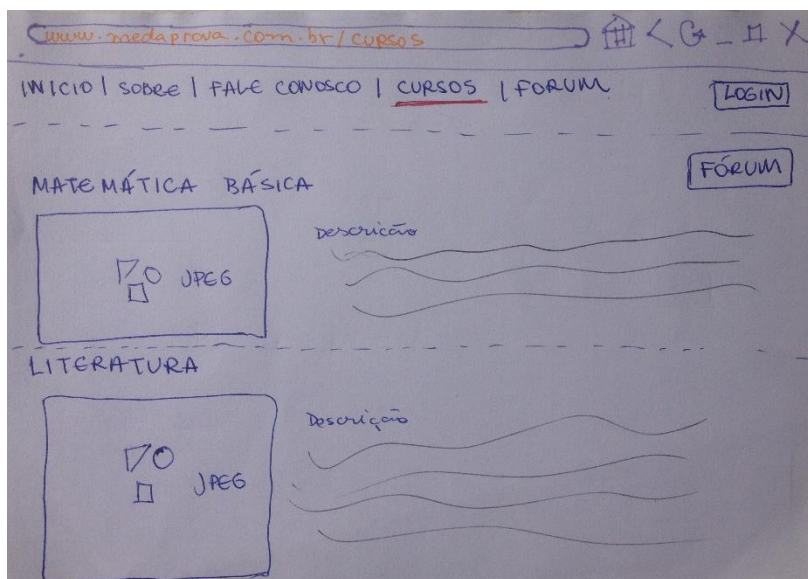 www.medaprova.com.br/cursos
INICIO | SOBRE | FALE CONOSCO | CURSOS | FORUM LOGIN
FÓRUM
MATEMÁTICA BÁSICA
Descrição
JPEG
LITERATURA
Descrição
JPEG